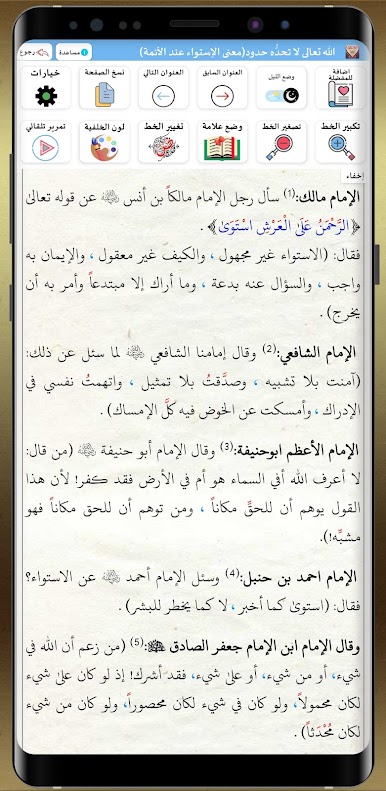 الله تعالى لا تحدُّه حدود(معنى الإستواء عند الأئمة)
مساعدة
رجوع
اضافة للمفضلة
وضع الليل
العنوان السابق
العنوان التالي
نسخ الصفحة
خيارات
تكبير الخط
تصغير الخط
وضع علامة
تغيير الخط
لون الخلفية
تمرير تلقائي
خفاء
الإمام مالك:(1) سأل رجل الإمام مالكاً بن أنس ﷺ عن قوله تعالى
﴿الرَّحْمَنُ عَلَى الْعَرْشِ اسْتَوَىٰ﴾ .
فقال: (الاستواء غير مجهول ، والكيف غير معقول ، والإيمان به
واجب ، والسؤال عنه بدعة ، وما أراك إلا مبتدعاً وأمر به أن
يخرج) .
الإمام الشافعي:(2) وقال إمامنا الشافعي لما سئل عن ذلك:
(آمنت بلا تشبيه ، وصدَّقتُ بلا تمثيل ، واتهمتُ نفسي في
الإدراك ، وأمسكت عن الخوض فيه كلَّ الإمساك) .
الإمام الأعظم ابوحنيفة:(3) وقال الإمام أبو حنيفة (من قال:
لا أعرف الله أفي السماء هو أم في الأرض فقد كفر! لأن هذا
القول يوهم أن للحق مكاناً ، ومن توهم أن للحق مكاناً فهو
مشبِّه!).
الإمام احمد بن حنبل:(4) وسئل الإمام أحمد عن الاستواء؟
فقال: (استوىٰ كما أخبر ، لا كما يخطر للبشر) .
وقال الإمام ابن الإمام جعفر الصادق :(5) (من زعم أن الله في
شيء، أو من شيء، أو علىٰ شيء، فقد أشرك! إذ لو كان علىٰ شيء
لكان محمولاً، ولو كان في شيء لكان محصوراً، ولو كان من شيء
لكان مُحْدَثاً) .